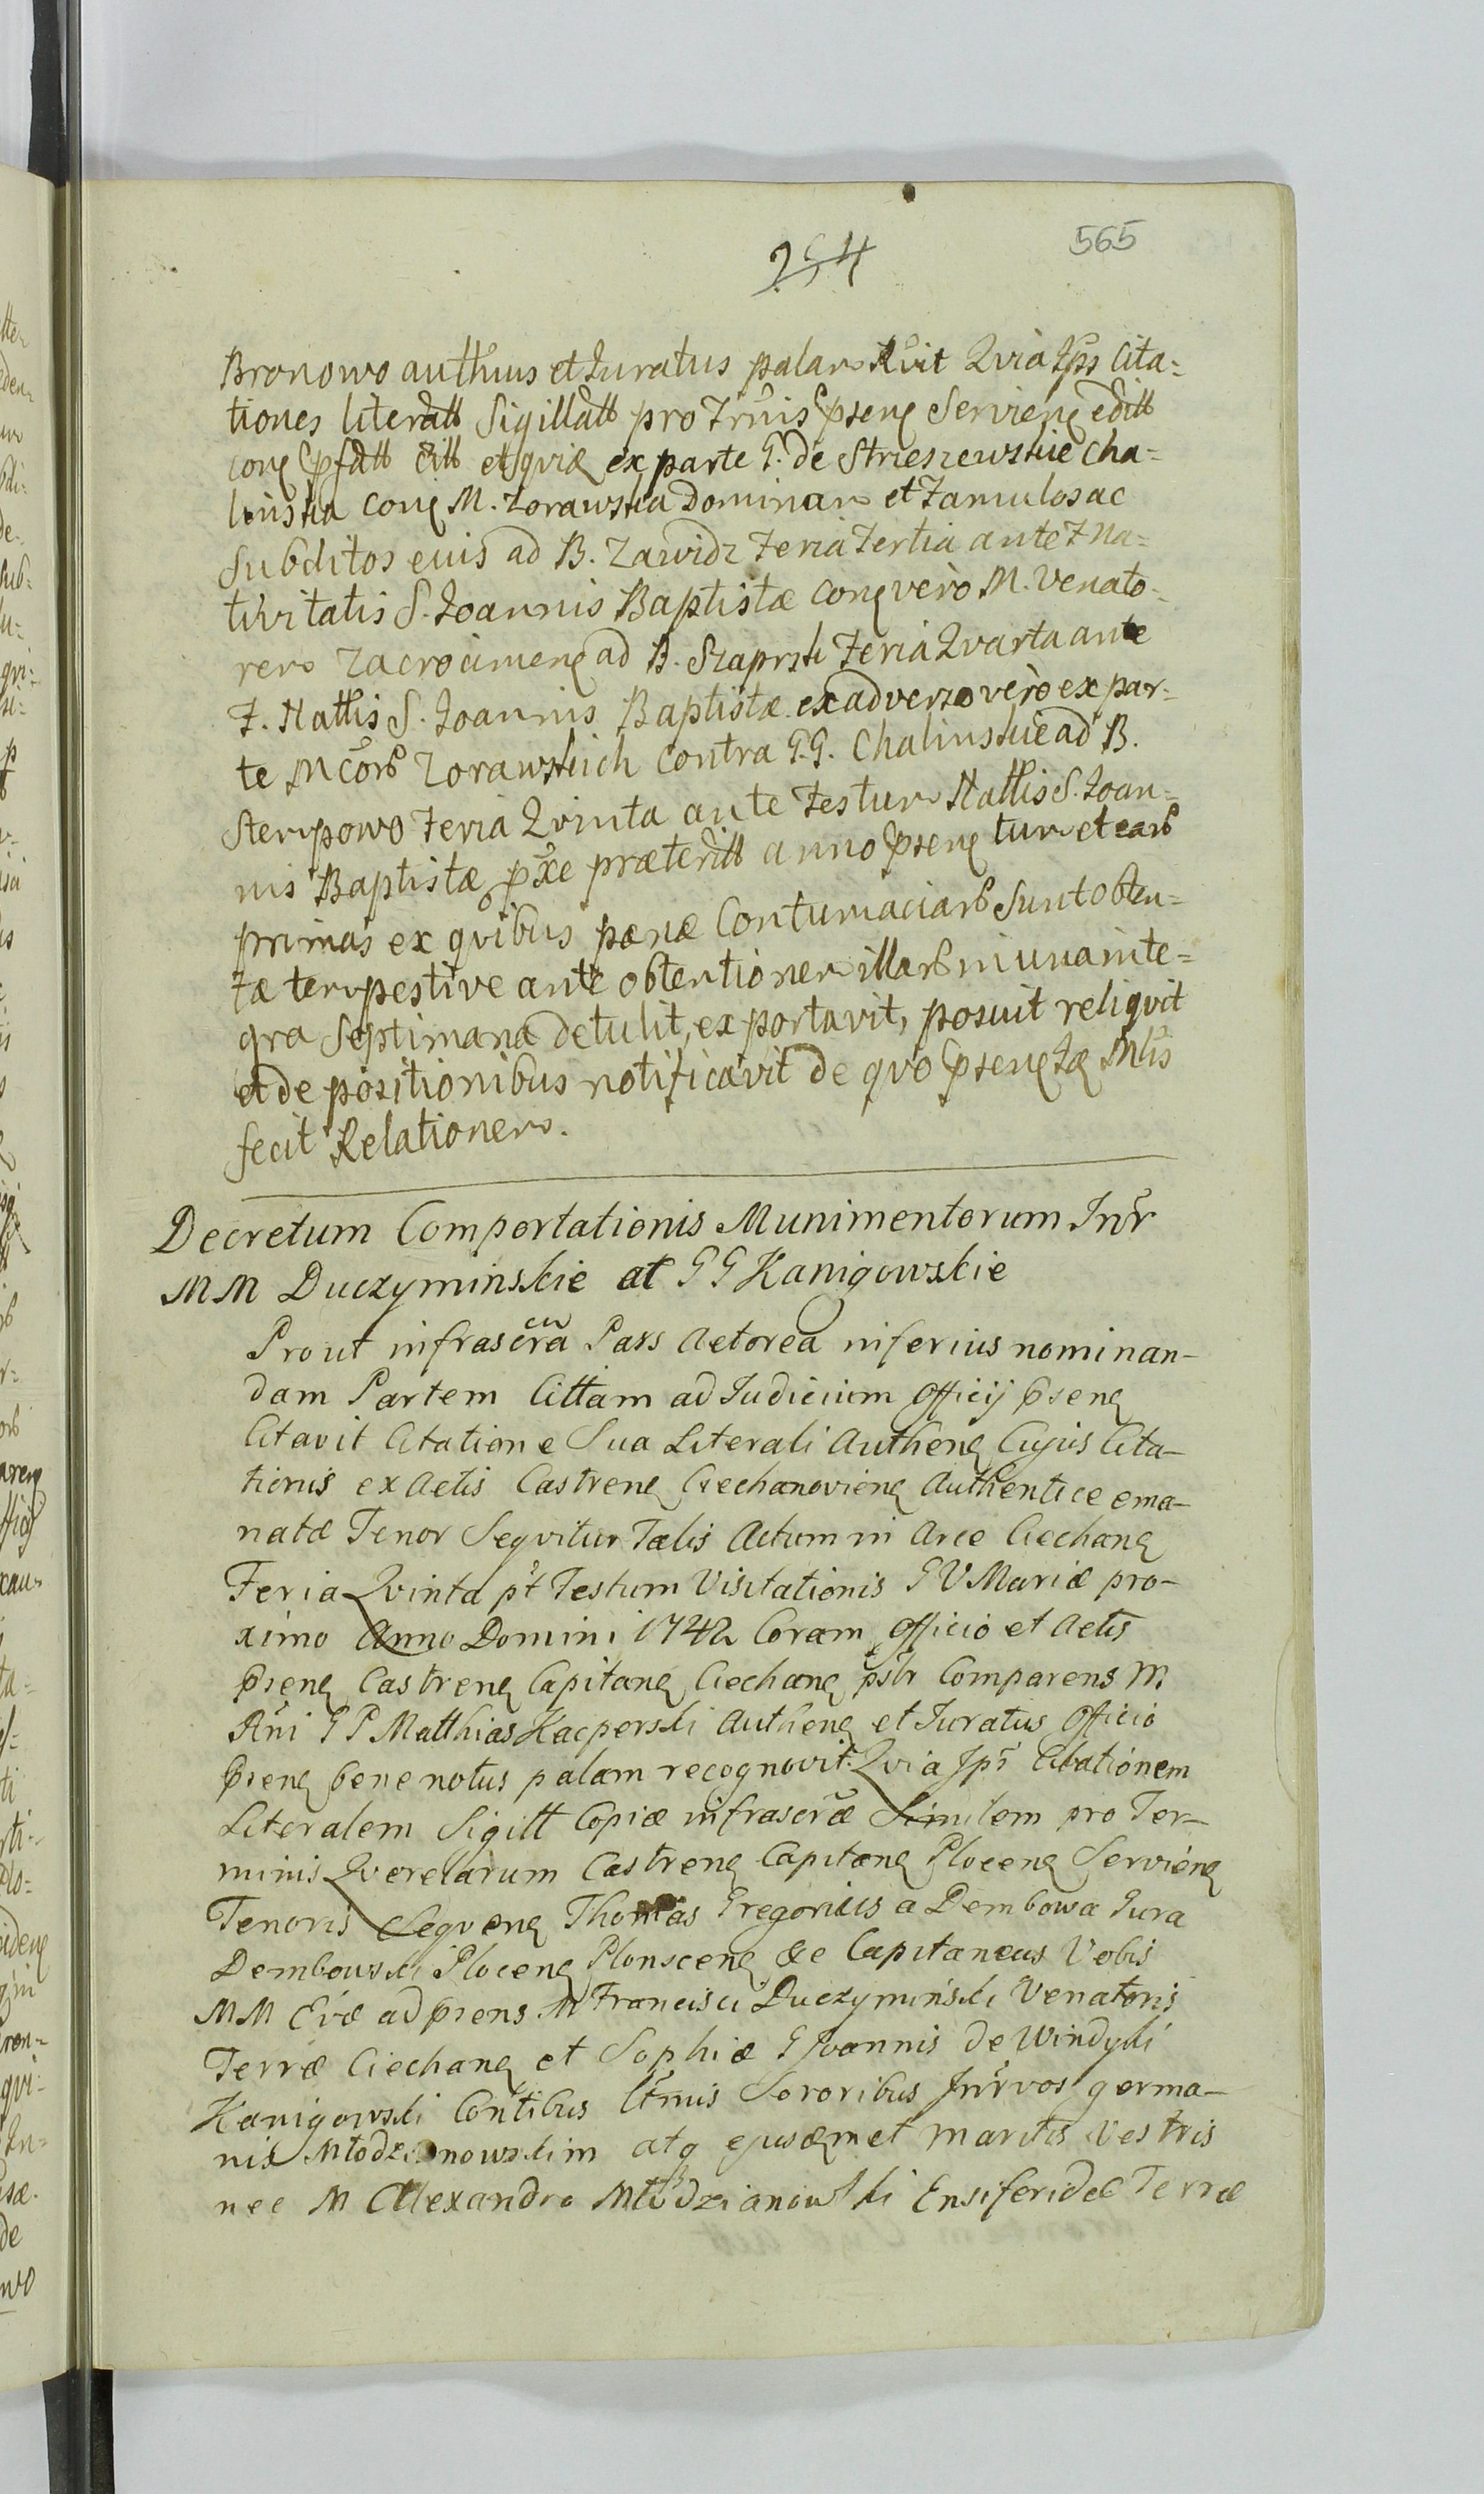 565
254
Bronowo authnus et Juratus palam Rvit Qvia Jps Cita=
tiones literatt Sigillatt pro Trnis Psenę Servienę editt
conę Psatt Citt et qviæ ex parte G. de Strieszewskie Cha=
linska conę M. Zorawska Dominam et Famulos ac
Subditos euis ad B. Zawidz Feria Tertia ante F Na=
tivitatis S. Joannis Baptistæ conę vero M. Venato=
rem Zacrocimenę ad B. Szaprsk Feria Qvarta ante
F. Nattis S. Joannis Baptistæ ex adverso vero ex par=
te M corb Zorawskich contra G.G. Chalinskie ad B.
Stempowo Feria Qvinta ante Festum Nattis S. Joan=
nis Baptistæ pxe præteritt anno Psenę tum et earb
primas ex qvibus pænæ Contumaciarb Sunt obten=
tæ tempestive ante obtentionem illarb in una inte=
gra Septimana detulit, exportavit, posuit reliqvit
et de positionibus notificavit de qvo Psenę Læ Mlis
fecit Relationem.
Decretum Comportationis Munimentorum Intr
MM Duczyminskie at GG Kanigowskie
Prout infrascra Pars Actorea inferius nominan-
dam Partem Cittam ad Judicium Officij Psenę
Citavit Citatione Sua Literali Authenę Cujus Cita-
tionis ex Actis Castrenę Ciechanovienę Authentice ema-
natæ Tenor Seqvitur Talis Actum in Arce Ciechanę
Feria Qvinta pt Festum Visitationis G V Mariæ pro-
ximo Anno Domini 1742 Coram Officio et Actis
Psenę Castrenę Capitanę Ciechanę pstr Comparens M
Rni G P Matthias Kacperski Authenę et Juratus Officio
Psenę bene notus palam recognovit Qvia Jps Citationem
Literalem Sigitt Copiæ infrascræ Similem pro Ter-
minis Qverelarum Castrenę Capitanę Plocenę Servienę
Tenoris Seqvenę Thomas Gregorius a Dembowa Gura
Dembowski Plocenę Plonscenę &c Capitaneus Vobis
MM Evæ ad prens M Francisci Duczyminski Venatoris
Terræ Ciechanę et Sophiæ G Joannis de Windyki
Kanigowski Contibus ltmis Sororibus Intr vos germa-
nis Młodzianowskim atq ejusdemet Maritis Vestris
nec M Allexandro Młodzianowski Ensiferidæ Terræ